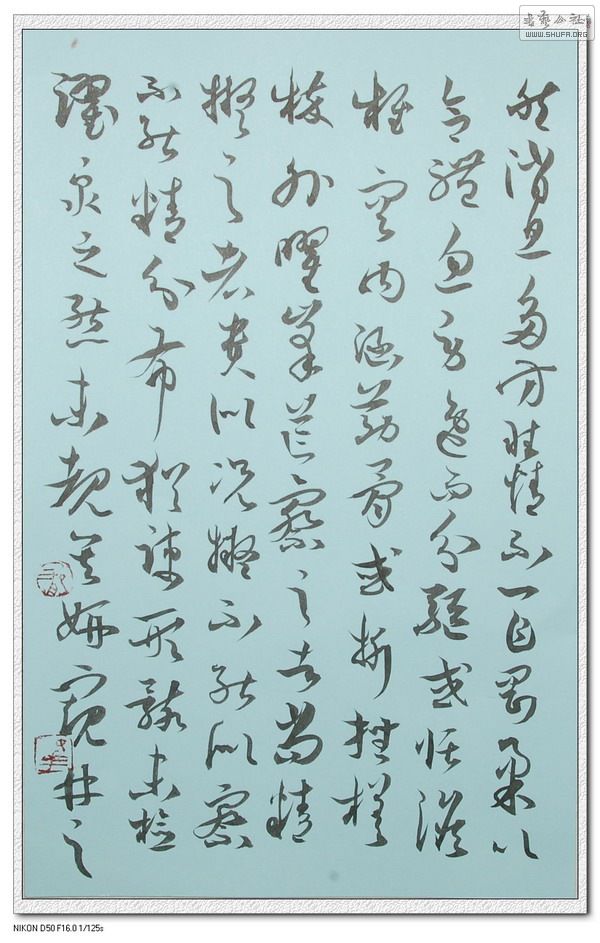 然消息多方性情不一乍剛柔以
合體忽勞逸而分驅或恬憺
雍容內涵筋骨或折挫槎
枿外曜鋒芒察之者尚精
擬之者貴似況擬不能似察
不能精分布猶疎形骸未檢
躍泉之態未覩其妍窺井之
书艺公社
WWW.SHUFA.ORG
NIKON D50 F16.0 1/125s